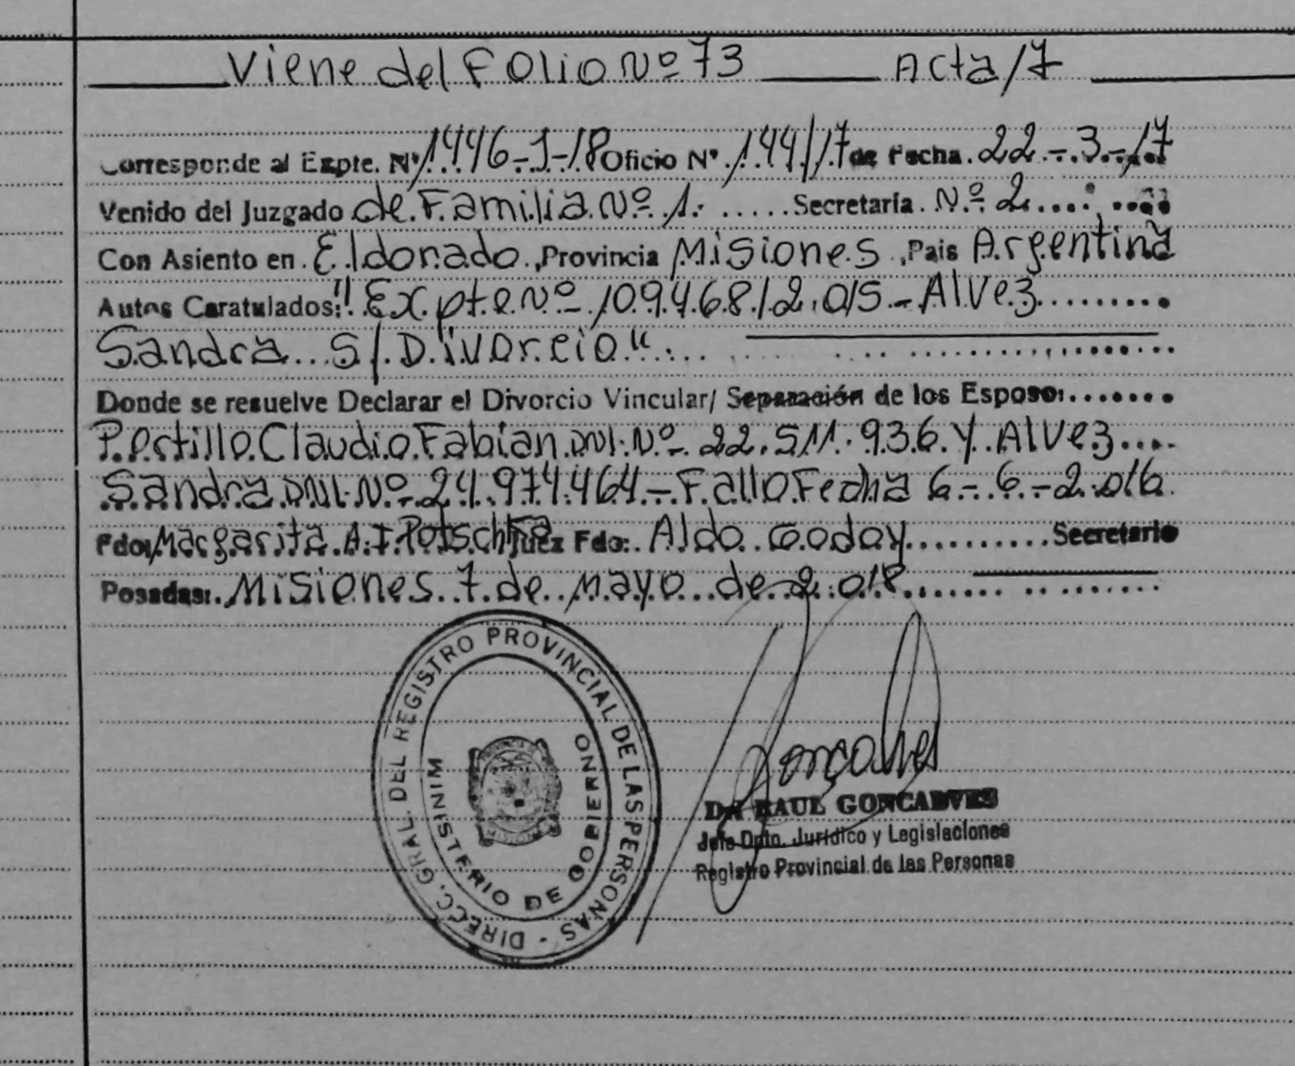 Viene del Folio Nº 73 Acta/7
Corresponde al Expte. Nº 1446-J-18 Oficio Nº 144/17 de Fecha 22-3-17
Venido del Juzgado de Familia Nº 1. Secretaría Nº 2
Con Asiento en Eldorado, Provincia Misiones, Pais Argentina
Autos Caratulados: "Expte Nº 109.468/2.015 - Alvez
Sandra S/ Divorcio"
Donde se resuelve Declarar el Divorcio Vincular/ Separación de los Esposos
Portillo Claudio Fabian DNI Nº 22.511.936 y Alvez
Sandra DNI Nº 24.974.464 - Fallo Fecha 6-6-2.016
Fdo: Margarita A. Potschka Juez Fdo: Aldo Godoy Secretario
Posadas: Misiones 7 de Mayo de 2.018
DIRECC. GRAL. DEL REGISTRO PROVINCIAL DE LAS PERSONAS -
MINISTERIO DE GOBIERNO
MISIONES
Goncalves
Dr. RAUL GONCALVES
Jefe Dpto. Jurídico y Legislaciones
Registro Provincial de las Personas